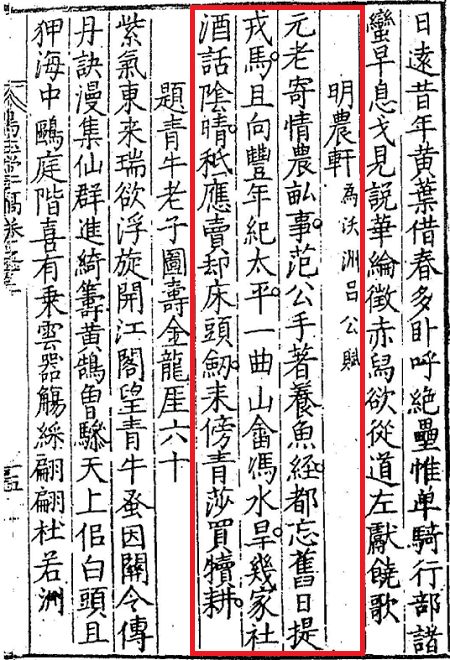 日遠昔年黄葉借春多卧呼絶壘惟单騎行部諸
蠻早息戈見說華綸徵赤舄欲從道左獻饒歌
明農軒 為沃洲吕公賦
元老寄情農畝事范公手著養魚經都忘舊日提
戎馬且向豐年紀太平一曲山畬馮水旱幾家社
酒話陰晴秪應賣却床頭劒来傍青莎買犢耕
題青牛老子圖壽金龍厓六十
紫氣東来瑞欲浮旋開江閣望青牛蚤因關令傳
丹訣漫集仙群進綺籌黄鵠曽驂天上侣白頭且
狎海中鷗庭階喜有乗雲器觴綵翩翩杜若洲